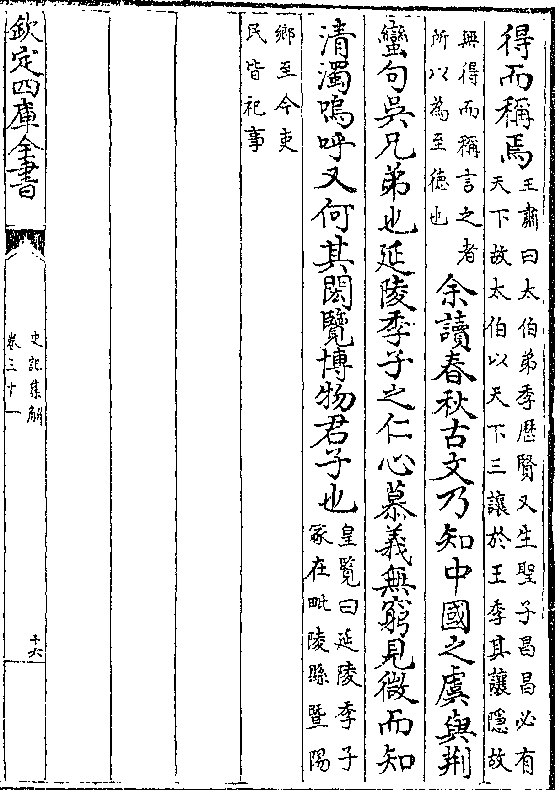 得而稱焉
王肅曰太伯弟季歷賢又生聖子昌昌必有
天下故太伯以天下三讓於王季其讓隱故
無得而稱言之者
所以為至德也
余讀春秋古文乃知中國之虞與荆
蠻句吳兄弟也延陵季子之仁心慕義無窮見微而知
清濁嗚呼又何其閎覽博物君子也
皇覽曰延陵季子
冢在毗陵縣暨陽
鄉至今吏
民皆祀事
欽定四庫全書
史記集解
卷三十一
十六